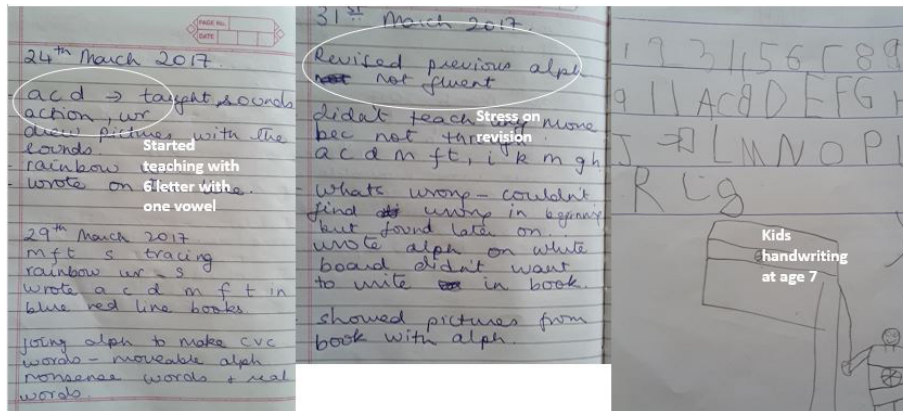 PAGE No.
DATE
24th March 2017.
- a c d → taught, sounds
action, wr
drew pictures with the
sounds.
- rainbow
- wrote on
Started
teaching with
6 letter with
one vowel
29th March 2017
m f t s tracing
rainbow wr - s
wrote a c d m f t in
blue red line books.
joing alph to make cvc
words - moveable alph
nonsense words + real
words.
PAGE No.
DATE
31st March 2017.
Revised previous alph
not fluent
didn't teach any more
bec not
a c d m f t, i k m g h
Stress on
revision
- Whats wrong - couldn't
find wrong in beginning
but found later on..
wrote alph on white
board didn't want
to write in book.
- showed pictures from
book with alph.
1 2 3 4 5 6 8 9
9 11 A C B D E F G H
J L M N O P
R
Kids
handwriting
at age 7